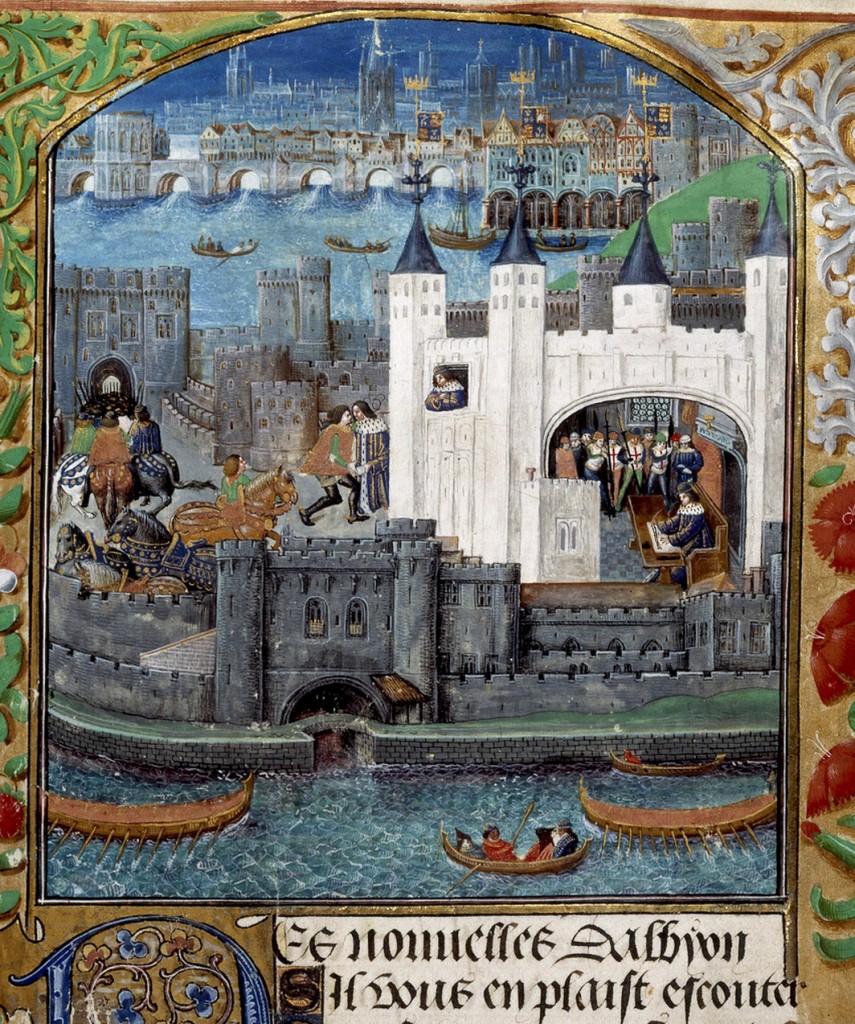 Des nouuelles dalbyon
Sil vous en plaist escouter